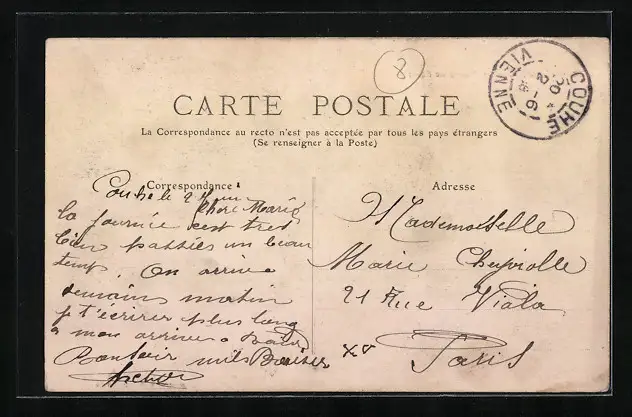 8
COUHÉ
VIENNE
CARTE POSTALE
La Correspondance au recto n'est pas acceptée par tous les pays étrangers
(Se renseigner à la Poste)
Correspondance
Couhé le 2 Juin
chère Marie
la journée c'est tres
bien passées un beau
temp. On arrive
demains matin
j t'écrirer plus long
a mon arrivee
Bonsoir mils Baiser
Adresse
Mademoiselle
Marie
21 Rue Viala
Paris
XV